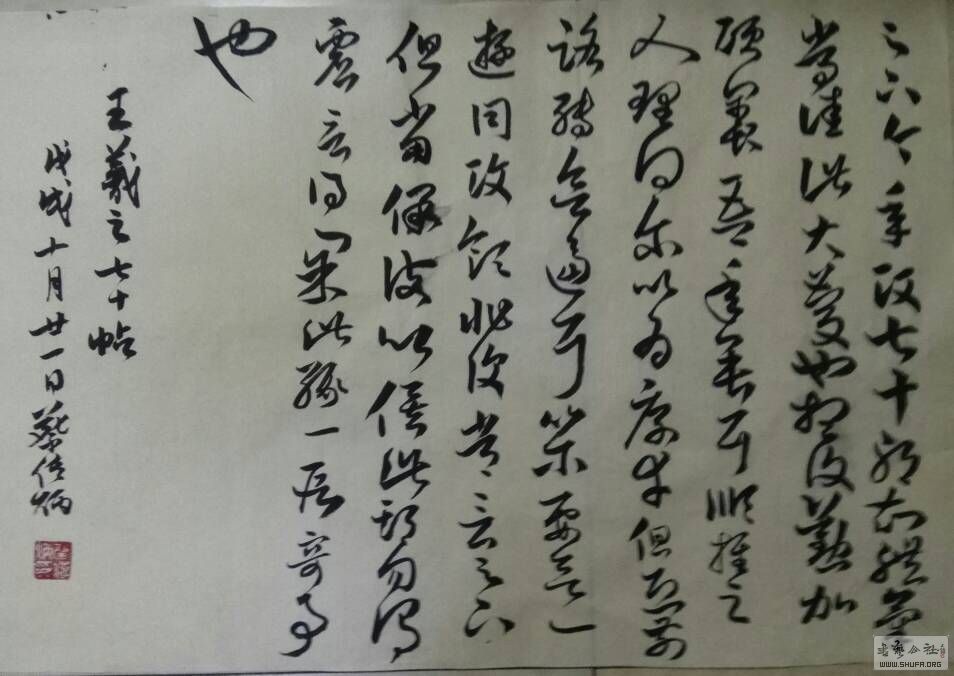 足下今年政七十耶知體氣
常佳此大慶也想復懃加
頤養吾年垂耳順推之
人理得爾以為厚幸但恐前
路轉欲逼耳以爾要欲一
遊目汶領非復常言足下
但當保護以俟此期勿謂
虛言得果此緣一段奇事
也
王羲之七十帖
戊戌十月廿一日蔡传炳
书艺公社
WWW.SHUFA.ORG